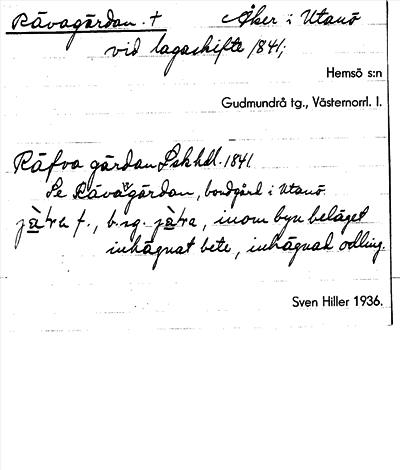 Rävagärdan. † Åker i Utanö
vid lagaskifte 1841;
Hemsö s:n
Gudmundrå tg., Västernorrl. l.
Räfva gärdan Lskhdl. 1841.
Se Rävagärdan, bondgård i Utanö
jàtra f., b. sg. jàtra, inom byn beläget
inhägnat bete, inhägnad odling.
Sven Hiller 1936.